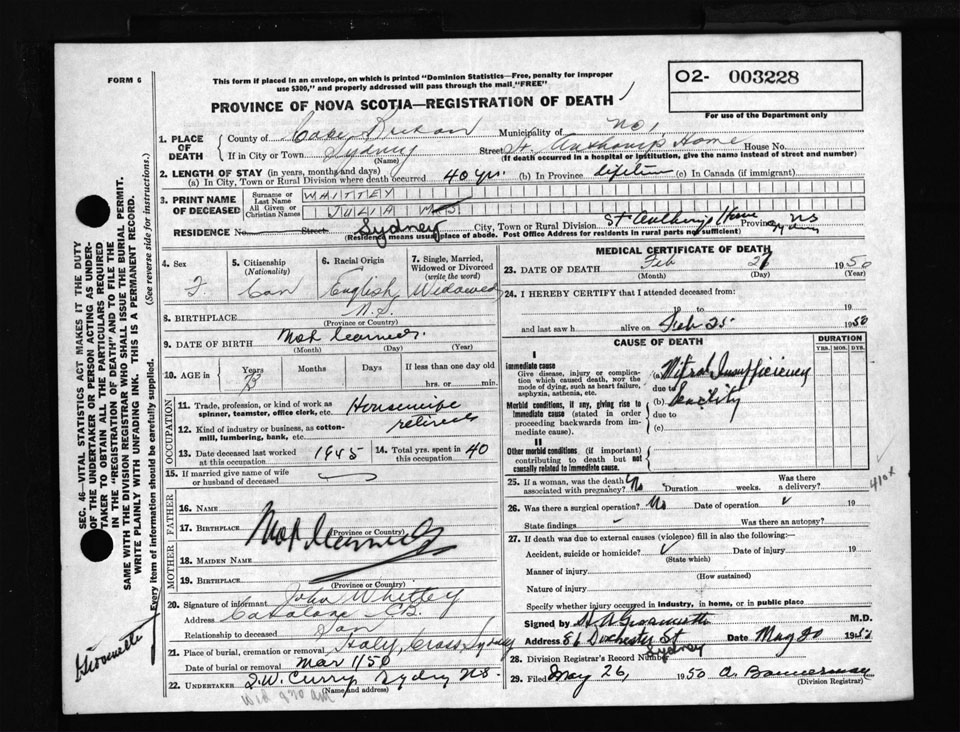 FORM 6
This form if placed in an envelope, on which is printed "Dominion Statistics—Free, penalty for improper
use $300," and properly addressed will pass through the mail "FREE"
O2- 003228
For use of the Department only
PROVINCE OF NOVA SCOTIA—REGISTRATION OF DEATH
1. PLACE OF DEATH
County of Cape Breton Municipality of No 1
If in City or Town Sydney (Name) Street St. Anthony's Home House No.
(If death occurred in a hospital or institution, give the name instead of street and number)
2. LENGTH OF STAY (in years, months and days)
(a) In City, Town or Rural Division where death occurred 40 yrs. (b) In Province lifetime (c) In Canada (if immigrant)
3. PRINT NAME OF DECEASED
Surname or Last Name WHITTEY
All Given or Christian Names JULIA
RESIDENCE No. Street Sydney City, Town or Rural Division St Anthony's Home Sydney Province NS
(Residence means usual place of abode. Post Office Address for residents in rural parts not sufficient)
4. Sex F
5. Citizenship (Nationality) Can
6. Racial Origin English
7. Single, Married, Widowed or Divorced (write the word) Widowed
8. BIRTHPLACE N.S.
(Province or Country)
9. DATE OF BIRTH Not learned
(Month) (Day) (Year)
10. AGE in Years Months Days If less than one day old
hrs. or min.
OCCUPATION
11. Trade, profession, or kind of work as spinner, teamster, office clerk, etc. Housewife
12. Kind of industry or business, as cotton-mill, lumbering, bank, etc. retired
13. Date deceased last worked at this occupation 1945
14. Total yrs. spent in this occupation 40
15. If married give name of wife or husband of deceased
FATHER
16. NAME
17. BIRTHPLACE Not learned
(Province or Country)
MOTHER
18. MAIDEN NAME
19. BIRTHPLACE
(Province or Country)
20. Signature of informant John Whitley
Address Catalone C.B.
Relationship to deceased Son
21. Place of burial, cremation or removal Holy Cross, Sydney
Date of burial or removal Mar 1/50
22. UNDERTAKER T.W. Curry Sydney NS.
(Name and address)
MEDICAL CERTIFICATE OF DEATH
23. DATE OF DEATH Feb 1950
(Month) (Day) (Year)
24. I HEREBY CERTIFY that I attended deceased from:
19 to 19
and last saw h alive on Feb 25 1950
CAUSE OF DEATH
DURATION
YRS. MOS. DYS.
I
Immediate cause
Give disease, injury or complication which caused death, NOT the mode of dying, such as heart failure, asphyxia, asthenia, etc.
(a) Mitral Insufficiency
due to
(b) Senility
Morbid conditions, if any, giving rise to immediate cause (stated in order proceeding backwards from immediate cause).
due to
(c)
II
Other morbid conditions (if important) contributing to death but not causally related to immediate cause.
25. If a woman, was the death associated with pregnancy? No Duration weeks. Was there a delivery?
26. Was there a surgical operation? No Date of operation 19
State findings Was there an autopsy?
27. If death was due to external causes (violence) fill in also the following:—
Accident, suicide or homicide? Date of injury 19
(State which)
Manner of injury
(How sustained)
Nature of injury
Specify whether injury occurred in industry, in home, or in public place
Signed by M.D.
Address 86 Dorchester St Sydney Date May 20 1950
28. Division Registrar's Record Number
29. Filed May 26, 1950 A. Bannerman
(Division Registrar)
SEC. 46—VITAL STATISTICS ACT MAKES IT THE DUTY
OF THE UNDERTAKER OR PERSON ACTING AS UNDER-
TAKER TO OBTAIN ALL THE PARTICULARS REQUIRED
IN THE "REGISTRATION OF DEATH" AND TO FILE THE
SAME WITH THE DIVISION REGISTRAR WHO SHALL ISSUE THE BURIAL PERMIT.
WRITE PLAINLY WITH UNFADING INK. THIS IS A PERMANENT RECORD.
Every item of information should be carefully supplied. (See reverse side for instructions.)